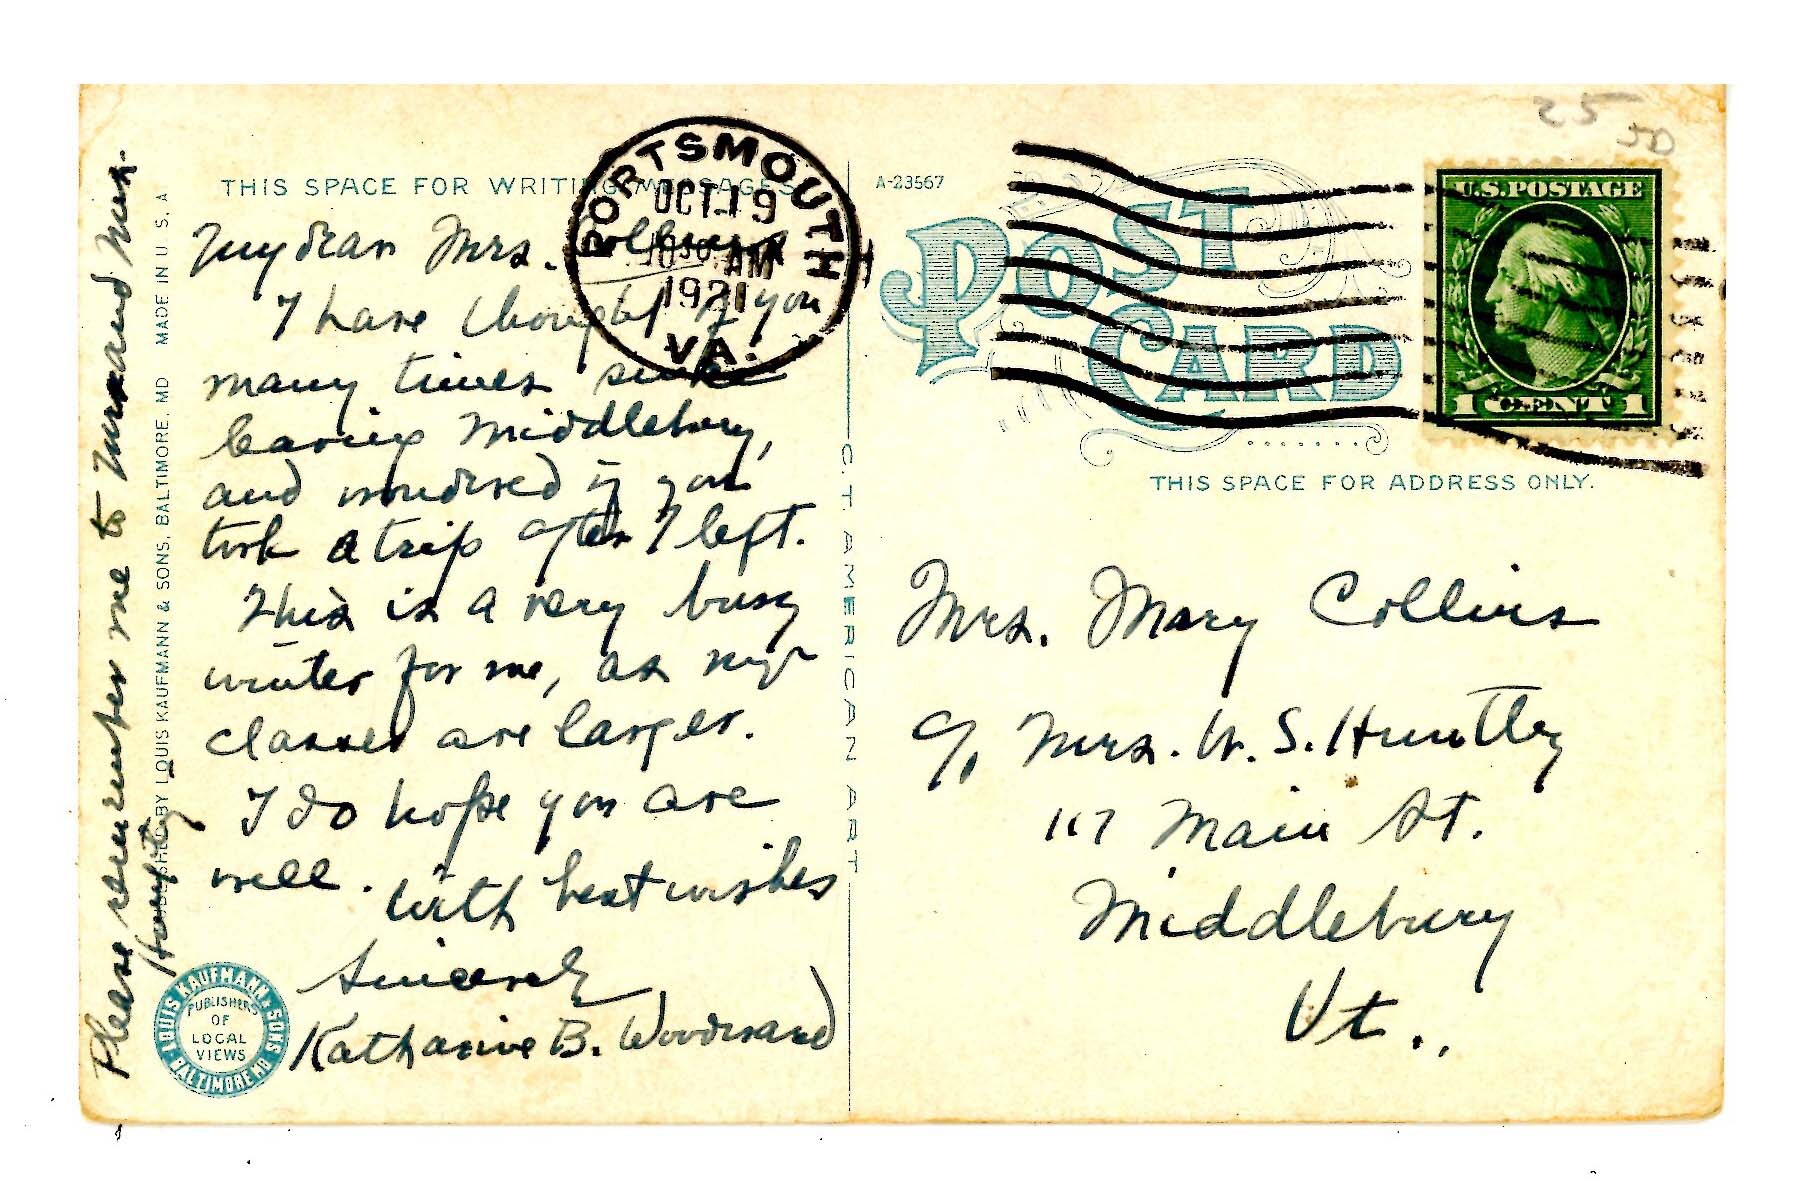 THIS SPACE FOR WRITING MESSAGES
My dear Mrs. Collins
I have thought of you
many times since
leaving Middlebury,
and wondered if you
took a trip after I left.
This is a very busy
winter for me, as my
classes are larger.
I do hope you are
well. With best wishes
Sincerely
Katharine B. Woodward
Please remember me to Mrs. and Miss
Huntley
PUBLISHED BY LOUIS KAUFMANN & SONS, BALTIMORE, MD MADE IN U. S. A
LOUIS KAUFMANN & SONS BALTIMORE MD
PUBLISHERS
OF
LOCAL
VIEWS
C. T. AMERICAN ART
PORTSMOUTH
OCT 19
AM
1921
VA.
A-23567
POST
CARD
25
50
U.S. POSTAGE
1 CENT 1
THIS SPACE FOR ADDRESS ONLY.
Mrs. Mary Collins
c/o Mrs. W. S. Huntley
117 Main St.
Middlebury
Vt.